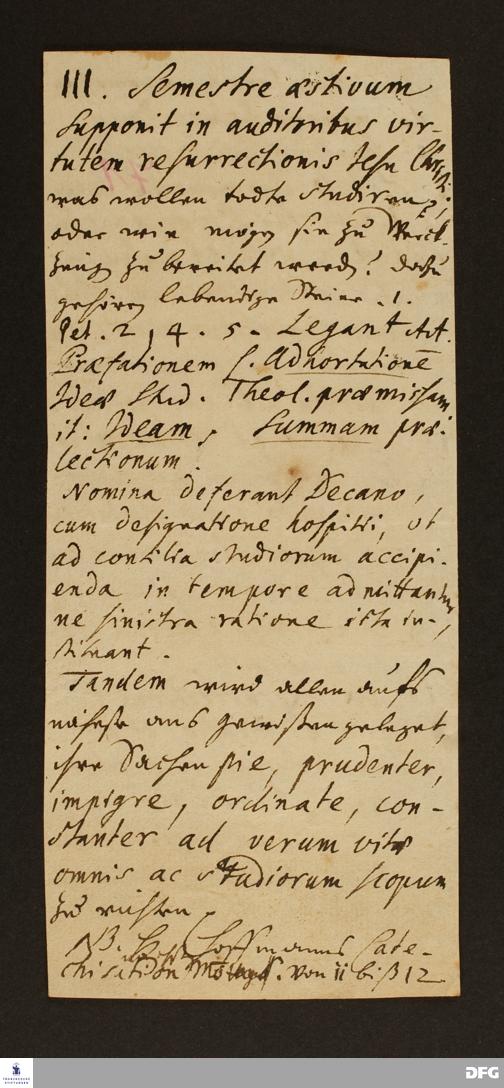 III. Semestre æstivum
supponit in auditoribus vir-
tutem resurrectionis Jesu Christi
was wollen todte studiren?
oder wie mögen sie zu Werck-
zeugen zu bereitet werden? dazu
gehören lebendige Steine. 1.
Pet. 2, 4. 5. Legant Art.
Præfationem s. Adhortationē
Ideæ Stud. Theol. præmissam
it: Ideam, Summam præ-
lectionum.
Nomina deferant Decano,
cum designatione hospitii, ut
ad consilia studiorum accipi-
enda in tempore admittantur,
ne sinistra ratione ista in-
stituant.
Tandem wird allen aufs
näheste ans Gewißen geleget,
ihre Sachen pie, prudenter,
impigre, ordinate, con-
stanter ad verum vitæ
omnis ac studiorum scopum
zu richten.
NB. Hoffmanns Cate-
chisation von 11 biß 12
FRANCKESCHE STIFTUNGEN
DFG